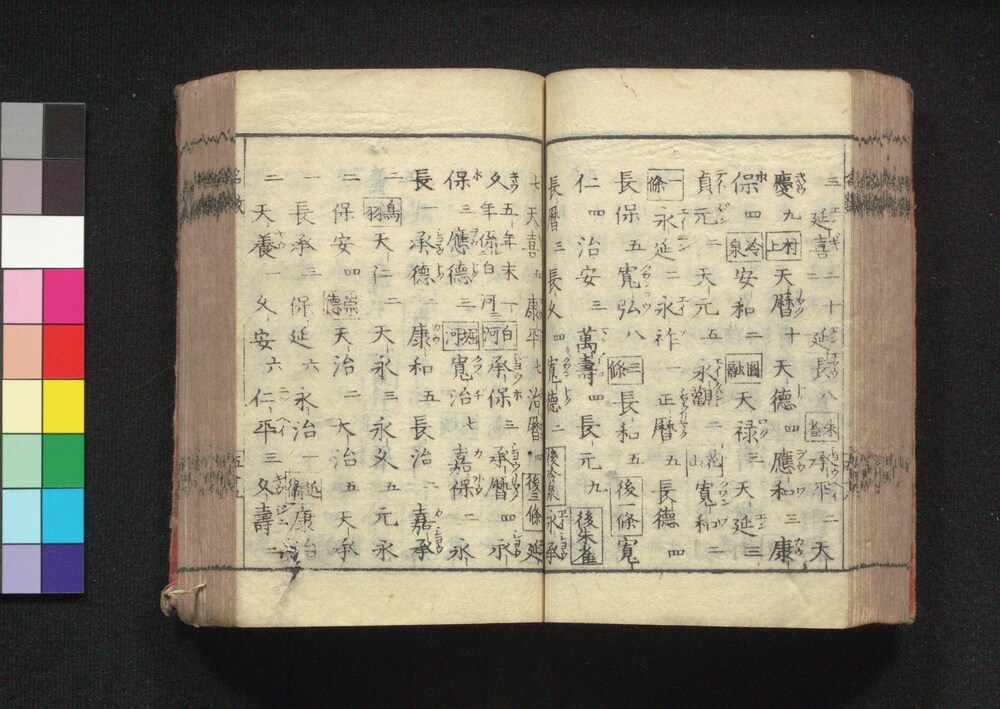 三延喜二十二延長八朱雀承平二天
慶九村上天暦十天德四應和三康
保四冷泉安和二圓融天禄三天延三
貞元二天元五永觀二花山寛和二
一條永延二永祚一正暦五長德四
長保五寛弘八三條長和五後一條寛
仁四治安三萬壽四長元九後朱雀
長暦三長久四寛德二後冷泉永承
七天喜五康平七治暦四後三條延
久五年年末一條白河三白河承保三承暦四永
保三應德三堀河寛治七嘉保二永
長一承德二康和五長治二嘉承
二鳥羽天仁二天永三永久五元永
二保安四崇德天治二大治五天承
一長承三保延六永治一近衛康治
二天養一久安六仁平三久壽二